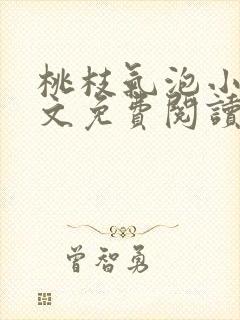 桃枝氣泡小
文免費閱讀
曾智勇